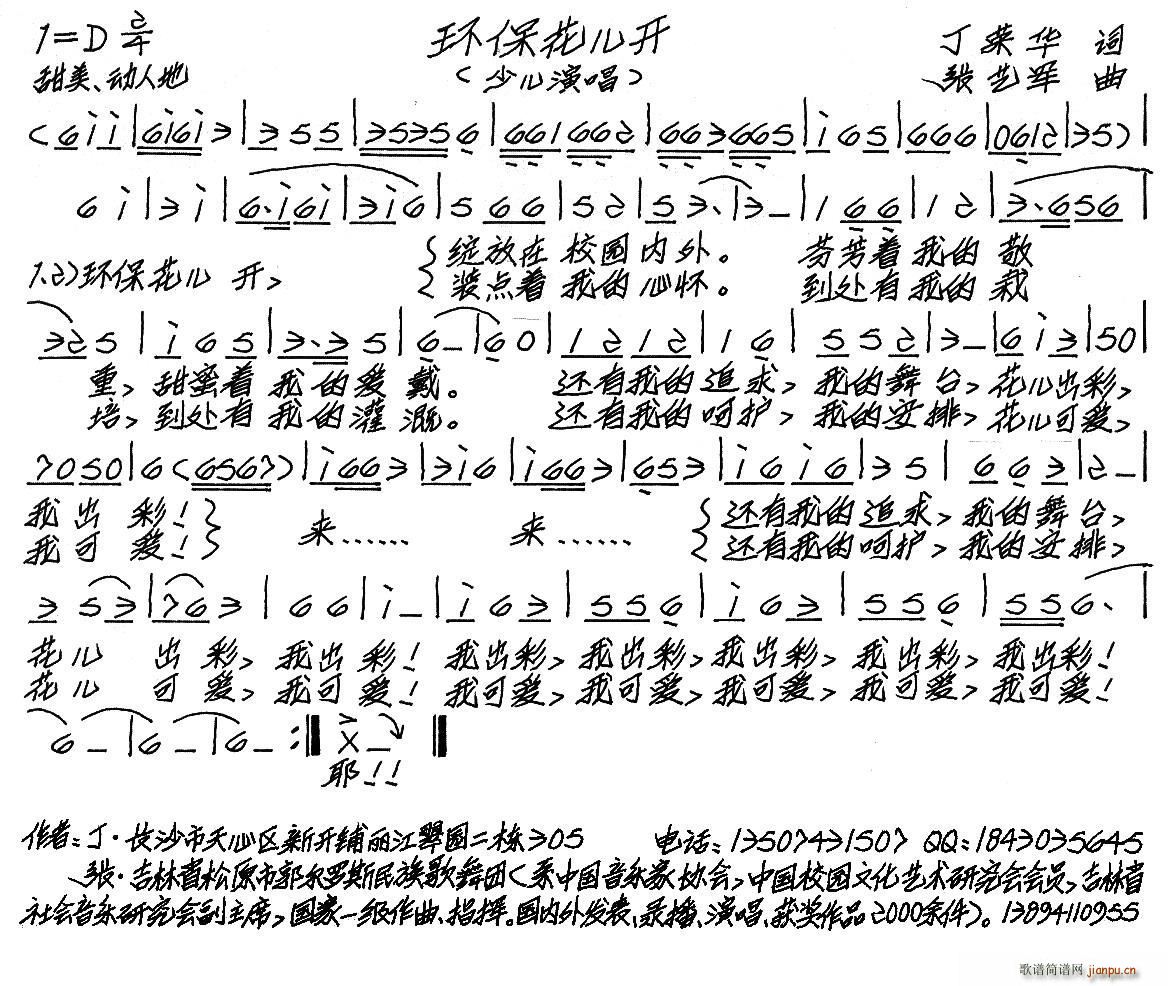 1=D 2/4 环保花儿开 丁荣华 词
甜美、动人地 (少儿演唱) 张艺军 曲
(6 i i | 6 i 6 i 3 | 3 5 5 | 3 5 3 5 6 | 6 6 1 6 6 2 | 6 6 3 6 6 5 | i 6 5 | 6 6 6 | 0 6 1 2 | 3 5) |
6 i | 3 i | 6. i 6 i | 3 i 6 | 5 6 6 | 5 2 | 5 3. | 3 – | 1 6 6 | 1 2 | 3. 6 5 6 |
绽放在 校园内外。 芬芳着我的 敬
1.2)环保花儿 开,
装点着 我的心怀。 到处有我的 栽
3 2 5 | i 6 5 | 3. 3 5 | 6 – | 6 0 | 1 2 1 2 | 1 6 | 5 5 2 | 3 – | 6 i 3 | 5 0 |
重, 甜蜜着 我的爱戴。 还有我的追求, 我的舞台, 花儿出彩,
培, 到处有 我的灌溉。 还有我的呵护, 我的安排, 花儿可爱,
7 0 5 0 | 6 (6 5 6 7) | i 6 6 3 | 3 i 6 | i 6 6 3 | 6 5 3 | i 6 i 6 | 3 5 | 6 6 3 | 2 – |
我 出 彩! 来…… 来…… 还有我的追求, 我的舞台,
我 可 爱! 还有我的呵护, 我的安排,
3 5 3 | 7 6 3 | 6 6 | i – | i 6 3 | 5 5 6 | i 6 3 | 5 5 6 | 5 5 6. |
花儿 出彩, 我出彩! 我出彩, 我出彩, 我出彩, 我出彩, 我出彩!
花儿 可爱, 我可爱! 我可爱, 我可爱, 我可爱, 我可爱, 我可爱!
6 – | 6 – | 6 – :‖ X – ‖
耶!!
作者:丁·长沙市天心区新开铺丽江翠园二栋305 电话:13507431507 QQ:1843035645
张·吉林省松原市郭尔罗斯民族歌舞团(系中国音乐家协会,中国校园文化艺术研究会会员,吉林省
社会音乐研究会副主席,国家一级作曲、指挥。国内外发表、录播、演唱、获奖作品2000余件)。13894110955
歌谱简谱网 jianpu.cn